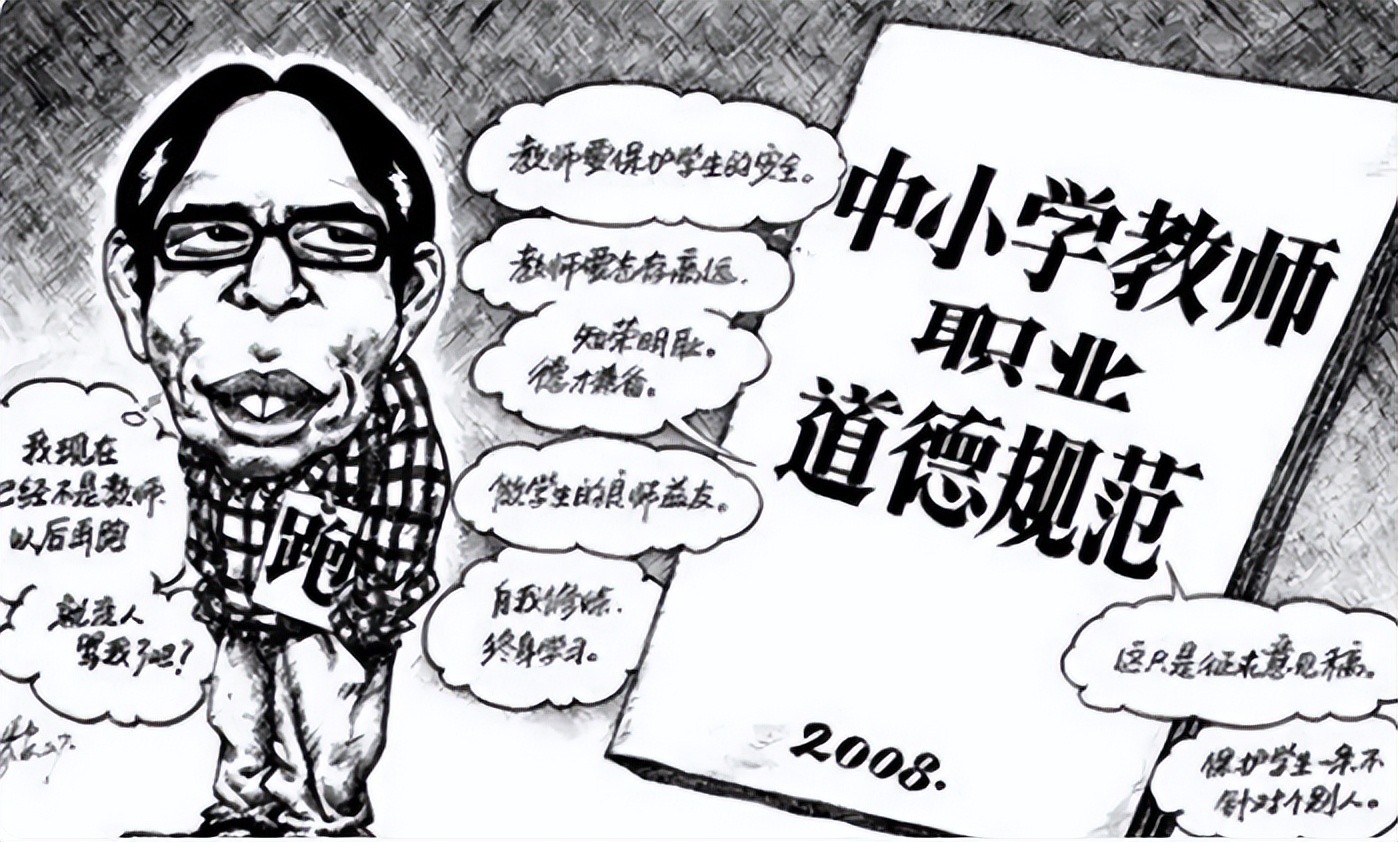 教师要保护学生的安全。
教师要志存高远.
知荣明耻。
德才兼备。
做学生的良师益友。
自我修炼.
终身学习。
我现在
已经不是教师.
以后再跑
就没人
骂我了吧?
跑
中小学教师
职业
道德规范
2008.
这只是征求意见稿。
保护学生一条不
针对个别人。